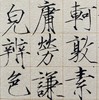 軻敦素
庸勞謙
皃辨色